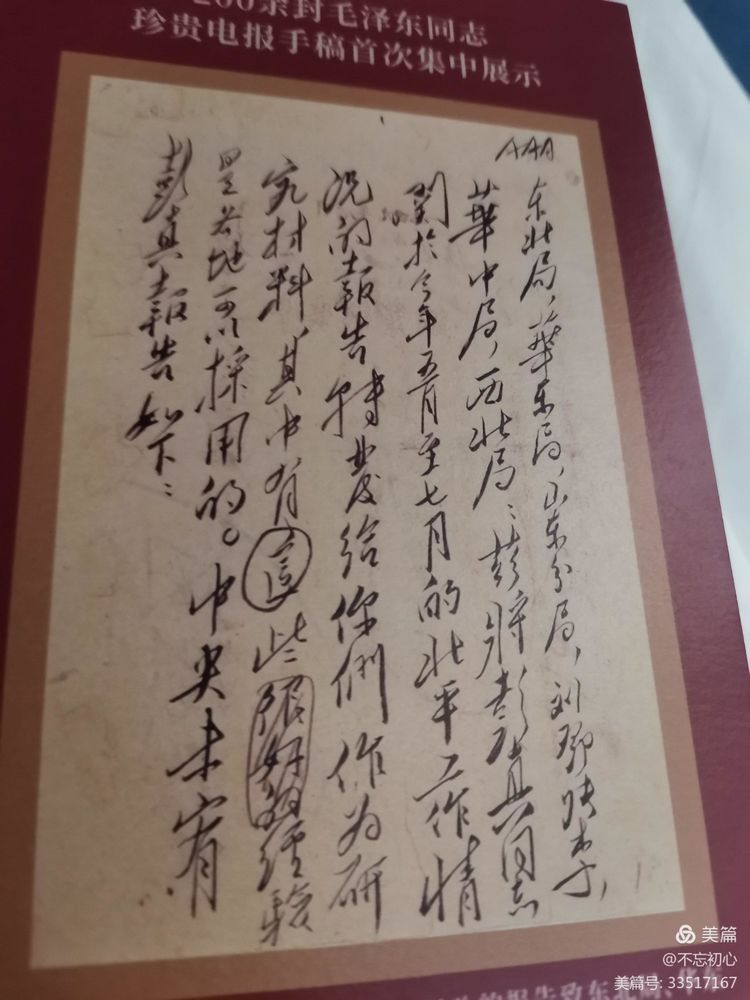 200余封毛泽东同志
珍贵电报手稿首次集中展示
AAA
东北局,華东局,山东分局,刘邓张李,
華中局,西北局:兹将彭真同志
關於今年五月至七月的北平工作情
况的報告转發给你們作为研
究材料,其中有這些很好的经验
是各地可以採用的。中央未宥
彭真報告如下:
的报告致东
美篇
@不忘初心
美篇号: 33517167